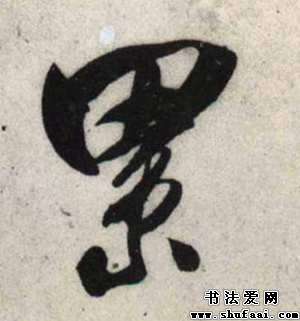 累
书法爱网
www.shufaai.com